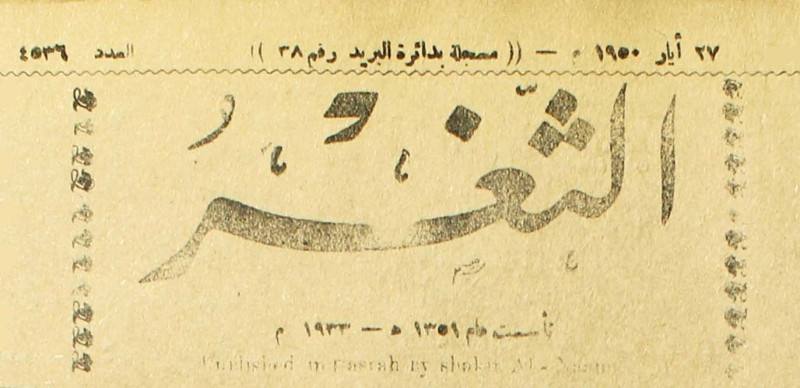 ٢٧ أيار ١٩٥٠ م — (( مسجلة بدائرة البريد رقم ٣٨ )) العدد ٤٥٣٦
الثغر
تأسست عام ١٣٥١ ه — ١٩٣٣ م
Published in Basrah by shakir Al-